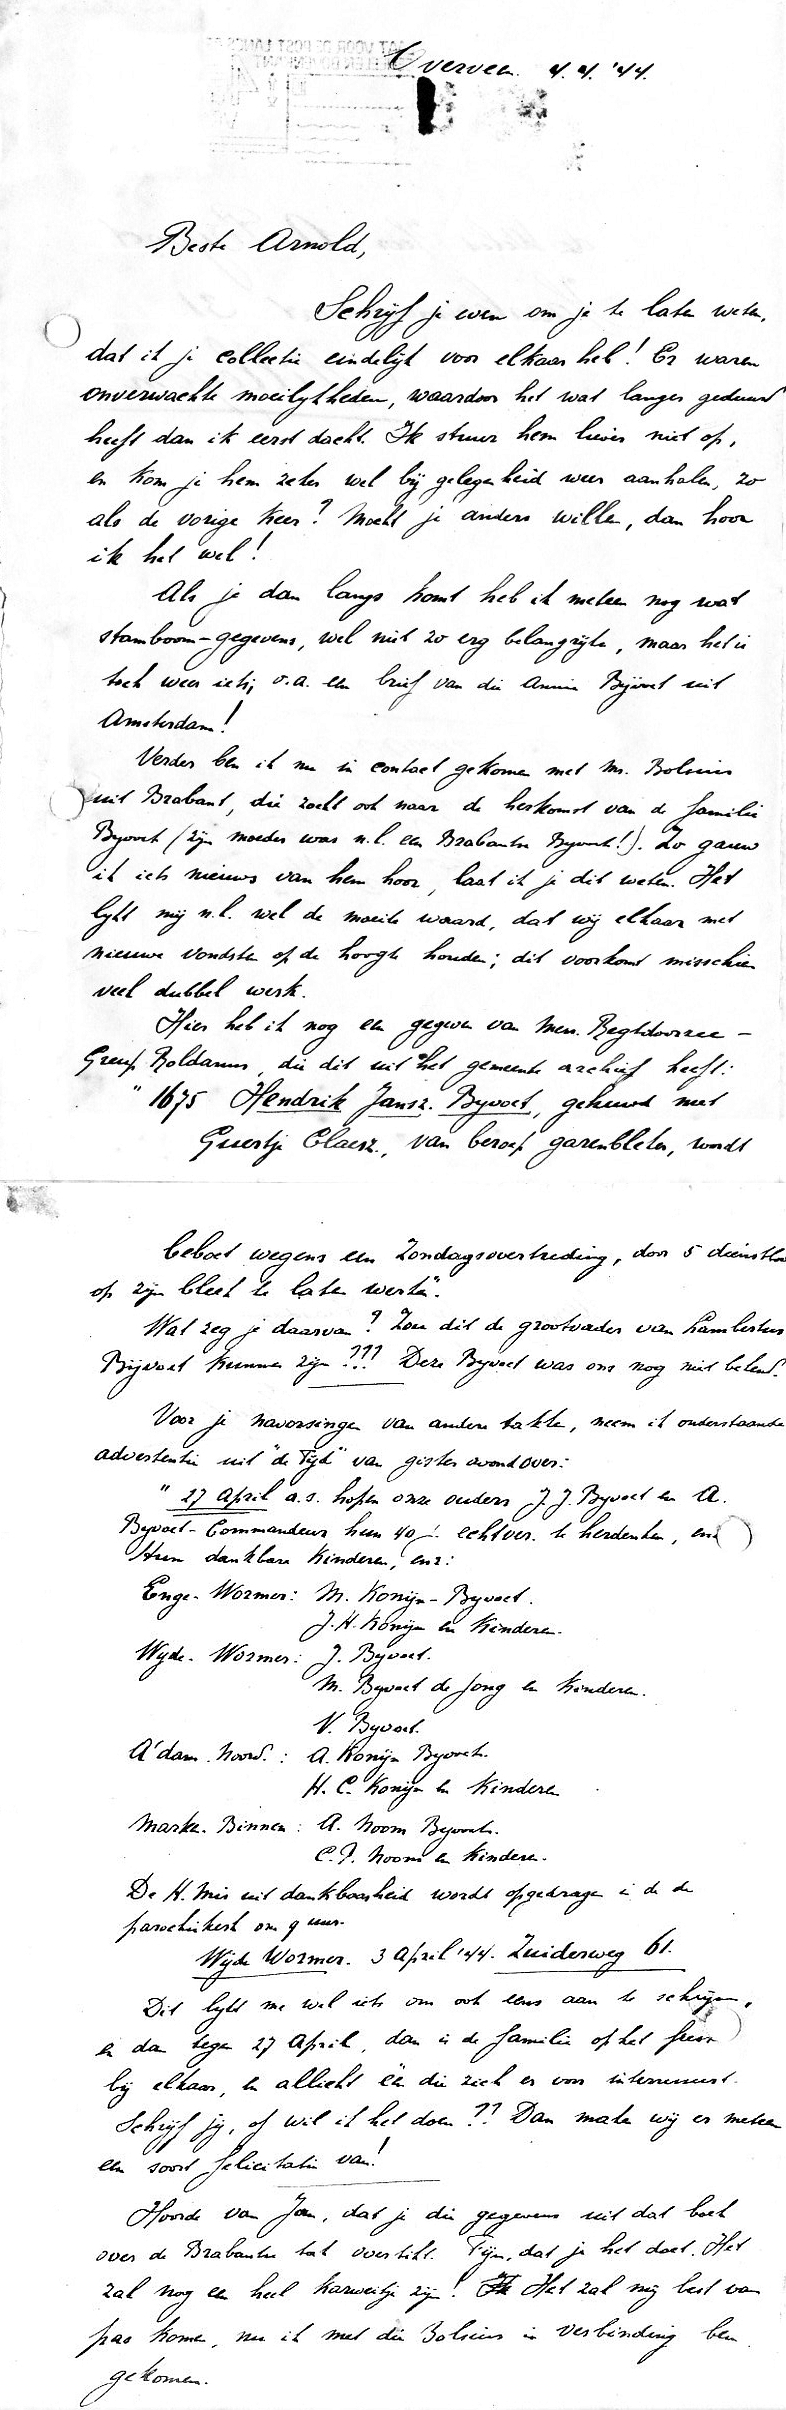 Overveen 4.4.'44.
Beste Arnold,
Schrijf je even om je te laten weten,
dat ik je collectie eindelijk voor elkaar heb! Er waren
onverwachte moeilijkheden, waardoor het wat langer geduurd
heeft dan ik eerst dacht. Ik stuur hem liever niet op,
en kom je hem zeker wel bij gelegenheid weer aanhalen, zo
als de vorige keer? Mocht je anders willen, dan hoor
ik het wel!
Als je dan langs komt heb ik meteen nog wat
stamboom-gegevens, wel niet zo erg belangrijke, maar het is
toch weer iets, o.a. een brief van die Annie Bijvoet uit
Amsterdam!
Verder ben ik nu in contact gekomen met Mr. Bolsius
uit Brabant, die zocht ook naar de herkomst van de familie
Byvoet (zijn moeder was n.l. een Brabantse Byvoet!). Zo gauw
ik iets nieuws van hem hoor, laat ik je dit weten. Het
lijkt mij n.l. wel de moeite waard, dat wij elkaar met
nieuwe vondsten op de hoogte houden; dit voorkomt misschien
veel dubbel werk.
Hier heb ik nog een gegeven van Mevr. Regtdoorzee-
Greup Roldanus, die dit uit het gemeente archief heeft:
" 1675 Hendrik Jansz. Byvoet, gehuwd met
Geertje Claesz., van beroep garenbleker, wordt
beboet wegens een Zondagsovertreding, door 5
op zijn bleek te laten werken".
Wat zeg je daarvan? Zou dit de grootvader van Lambertus
Bijvoet kunnen zijn??? Deze Byvoet was ons nog niet bekend.
Voor je navorsingen van andere takken, neem ik onderstaande
advertentie uit "de Tijd" van gister avond over:
" 27 April a.s. hopen onze ouders J.J. Byvoet en A.
Byvoet-Commandeur hun 40 j. echtver. te herdenken, enz
Hun dankbare kinderen, enz:
Enge-Wormer: M. Konijn-Byvoet.
J.H. Konijn en kinderen.
Wijde-Wormer: J. Byvoet.
M. Byvoet de Jong en kinderen.
V. Byvoet.
A'dam Noord.: A. Konijn Byvoet.
H.C. Konijn en kinderen
Marke-Binnen: A. Noom Byvoet.
C.P. Noom en kinderen.
De H. Mis uit dankbaarheid wordt opgedragen in de
parochiekerk om 9 uur.
Wijde Wormer. 3 April '44. Zuiderweg 61.
Dit lijkt me wel iets om ook eens aan te schrijven,
en dan tegen 27 April, dan is de familie op het feest
bij elkaar, en allicht één die zich er voor interesseert.
Schrijf jij, of wil ik het doen?? Dan maken wij er meteen
een soort felicitatie van!
Hoorde van Jan, dat je die gegevens uit dat boek
over de Brabantse tak overtikt. Fijn, dat je het doet. Het
zal nog een heel karweitje zijn! Het zal mij best van
pas komen, nu ik met die Bolsius in verbinding ben
gekomen.